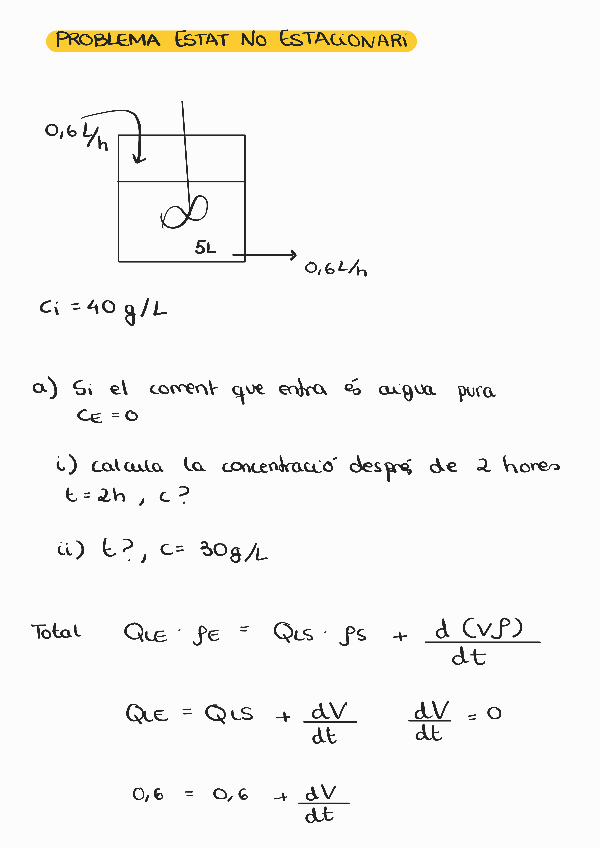 PROBLEMA ESTAT NO ESTACIONARI
0,6 L/h
5L
0,6 L/h
Ci = 40 g/L
a) Si el corrent que entra és aigua pura
CE = 0
i) calcula la concentració després de 2 hores
t = 2h , c ?
ii) t ? , c = 30 g/L
Total QLE · ρE = QLS · ρS + d (Vρ) / dt
QLE = QLS + dV / dt dV / dt = 0
0,6 = 0,6 + dV / dt